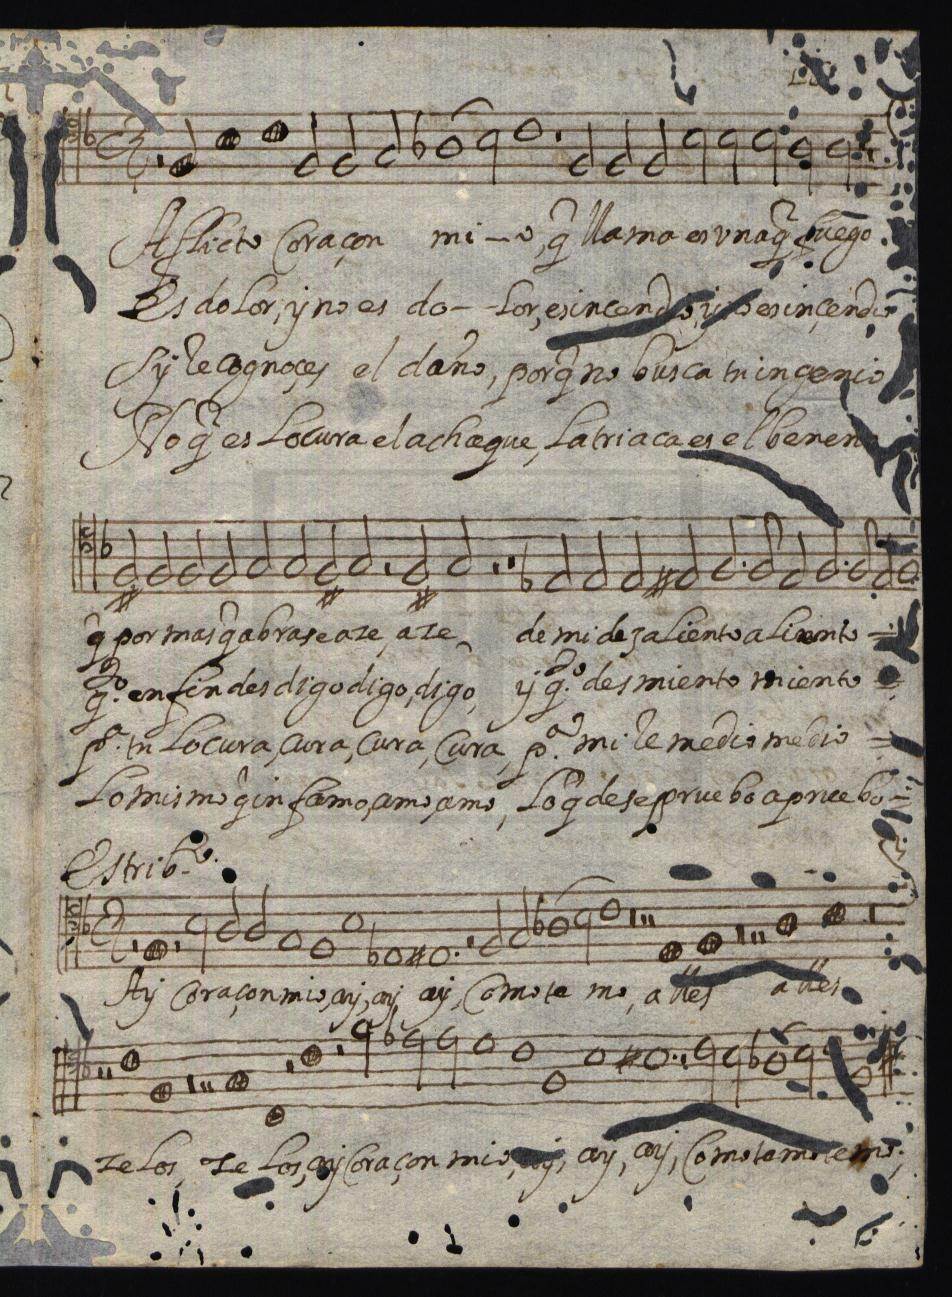 Aflicto Coraçon mi-o, q̃ llama es vna q̃ fuego
Es dolor, y no es do--lor, es incendio, y no es inçendio
Sy le Cognoçes el daño, porq̃ no busca tu ingenio
No q̃ es Locura el achaque, La triaca es el beneno
q̃ por mas q̃ abrase aze aze, de mi dezaliento aliento =
q.do en fin desdigo digo, digo, y q.do desmiento miento =
p.a tu Locura, Cura, Cura, Cura, p.a mi Remedio medio =
Lo mismo q̃ infamo, amo, amo, Lo q̃ desapruebo apruebo =
Estrib.o
Ay Coraçon mio, ay, ay, ay, Como te mo, alles alles
zelos, zelos, ay Coraçon mio, ay, ay, ay, Como te mo te mo,